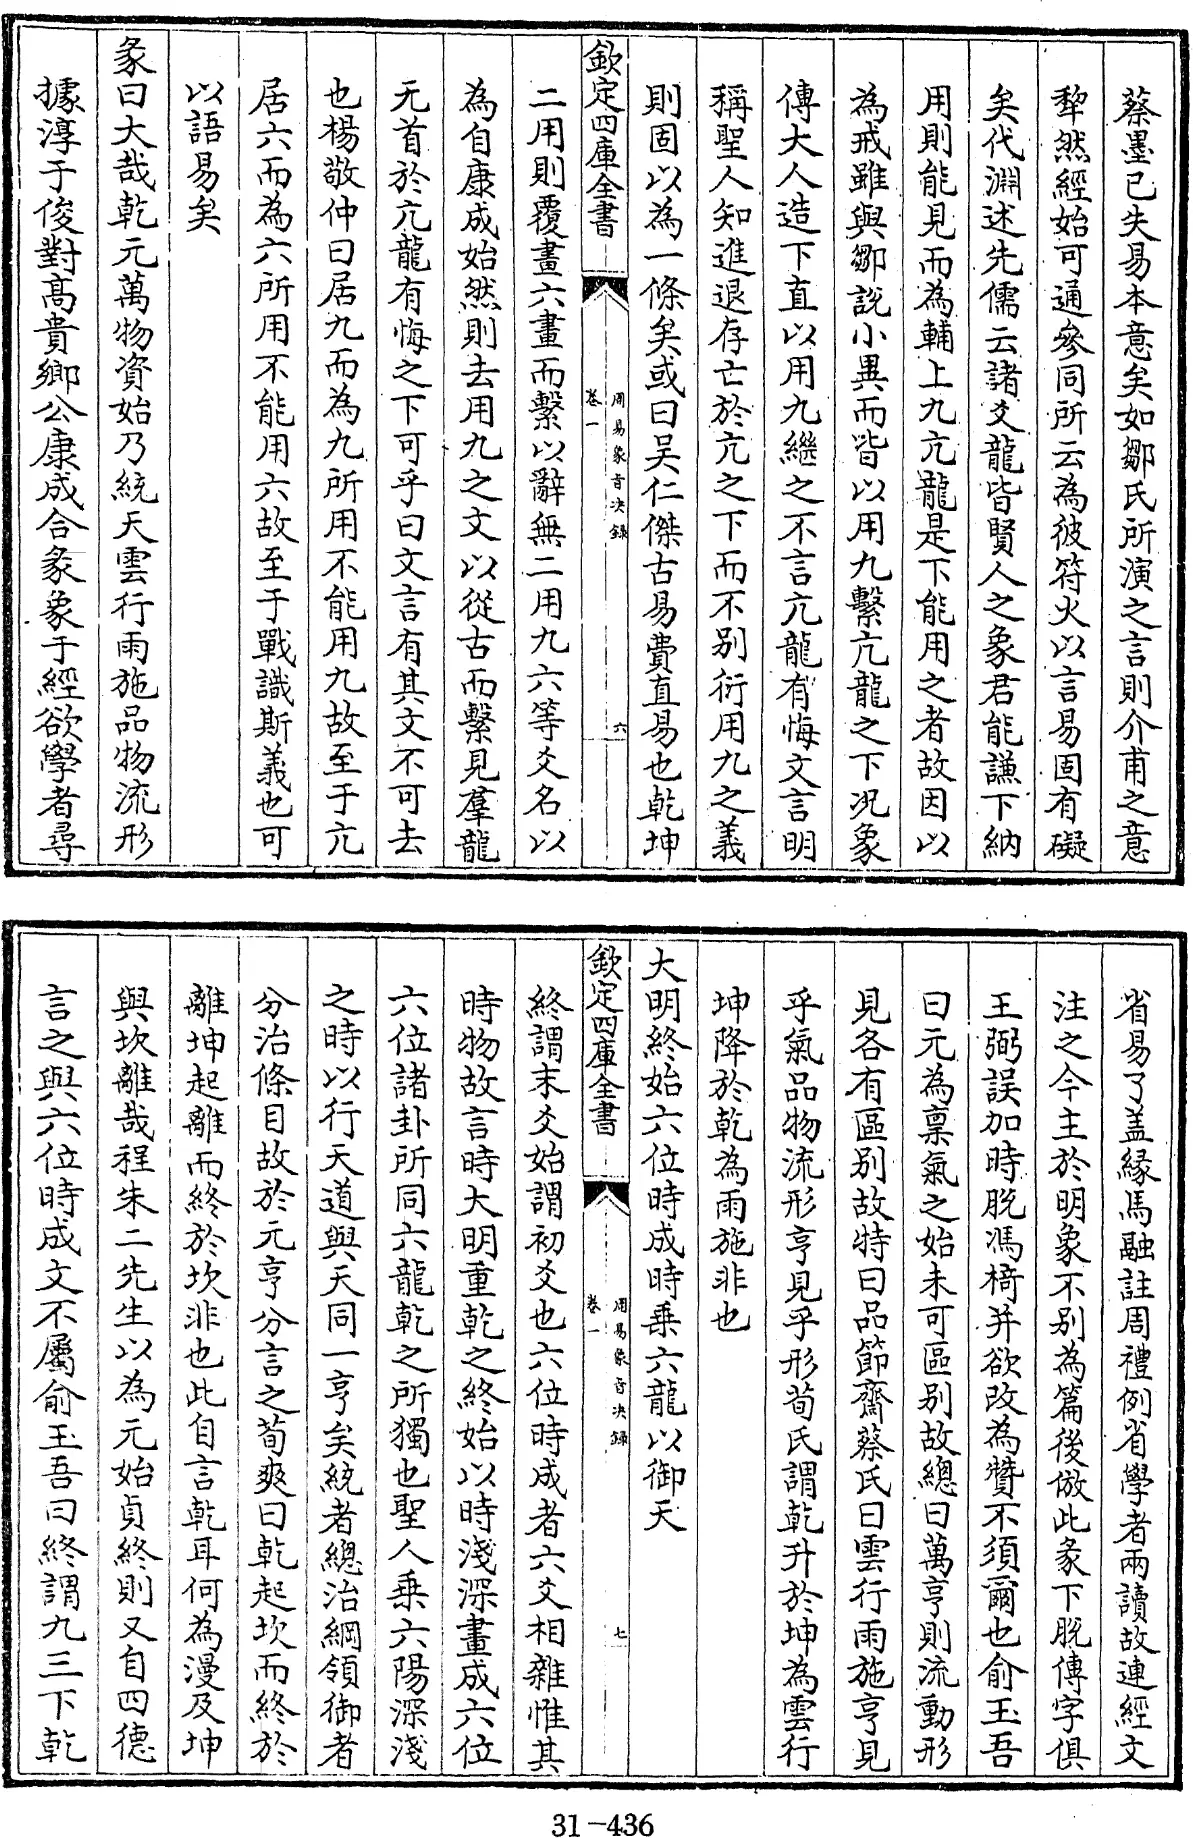 蔡墨已失易本意矣如鄒氏所演之言則介甫之意
犂然經始可通參同所云為彼符火以言易固有礙
矣代淵述先儒云諸爻龍皆賢人之象君能謙下納
用則能見而為輔上九亢龍是下能用之者故因以
為戒雖與鄒說小異而皆以用九繫亢龍之下況象
傳大人造下直以用九繼之不言亢龍有悔文言明
稱聖人知進退存亡於亢之下而不别衍用九之義
則固以為一條矣或曰吴仁傑古易費直易也乾坤
欽定四庫全書
周易象旨決録
卷一
六
二用則覆畫六畫而繫以辭無二用九六等爻名以
為自康成始然則去用九之文以從古而繫見羣龍
无首於亢龍有悔之下可乎曰文言有其文不可去
也楊敬仲曰居九而為九所用不能用九故至于亢
居六而為六所用不能用六故至于戰識斯義也可
以語易矣
彖曰大哉乾元萬物資始乃統天雲行雨施品物流形
據淳于俊對髙貴鄉公康成合彖象于經欲學者尋
省易了盖緣馬融註周禮例省學者兩讀故連經文
注之今主於明象不别為篇後倣此彖下脱傳字俱
王弼誤加時脱馮椅并欲改為贊不須爾也俞玉吾
曰元為禀氣之始未可區别故總曰萬亨則流動形
見各有區别故特曰品節齋蔡氏曰雲行雨施亨見
乎氣品物流形亨見乎形荀氏謂乾升於坤為雲行
坤降於乾為雨施非也
大明終始六位時成時乘六龍以御天
欽定四庫全書
周易象旨決録
卷一
七
終謂末爻始謂初爻也六位時成者六爻相雜惟其
時物故言時大明重乾之終始以時淺深畫成六位
六位諸卦所同六龍乾之所獨也聖人乘六陽深淺
之時以行天道與天同一亨矣統者總治綱領御者
分治條目故於元亨分言之荀爽曰乾起坎而終於
離坤起離而終於坎非也此自言乾耳何為漫及坤
與坎離哉程朱二先生以為元始貞終則又自四德
言之與六位時成文不屬俞玉吾曰終謂九三下乾
31-436